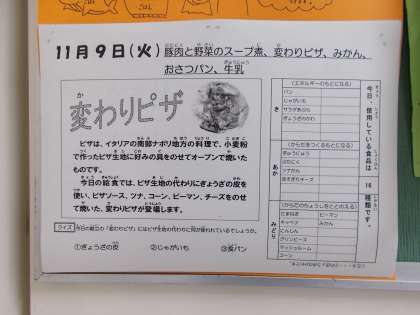 11月9日(火) 豚肉と野菜のスープ煮、変わりピザ、みかん、
おさつパン、牛乳
変わりピザ
ピザは、イタリアの南部ナポリ地方の料理で、小麦粉
で作ったピザ生地に好みの具をのせてオーブンで焼いた
ものです。
今日の給食では、ピザ生地の代わりにぎょうざの皮を
使い、ピザソース、ツナ、コーン、ピーマン、チーズをのせ
て焼いた、変わりピザが登場します。
クイズ 今日の献立の「変わりピザ」にはピザ生地の代わりに何が使われているでしょうか。
①ぎょうざの皮 ②じゃがいも ③食パン
今日、使用している食品は 16 種類です。
き
(エネルギーのもとになる)
パン
じゃがいも
サラダあぶら
ぎょうざのかわ
あか
(からだをつくるもとになる)
ぎゅうにゅう
ぶたにく
ツナかん
みどり
(からだのちょうしをととのえる)
たまねぎ ピーマン
キャベツ みかん
にんじん
グリンピース
マッシュルーム
コーン